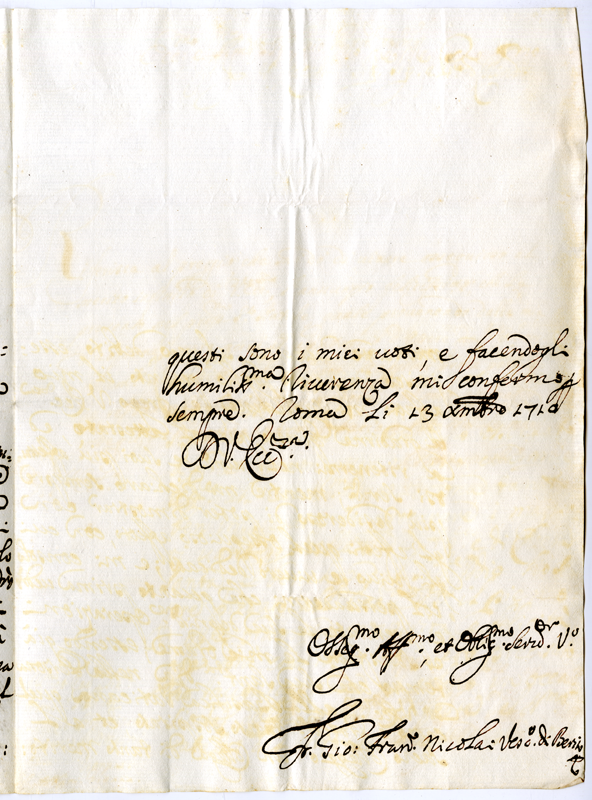 questi sono i miei voti, e facendogli
humiliss.ma Riverenza mi confermo p
sempre. Roma li 13 Xmbre 1710
D V. Ecc.za
Osseq.mo Aff.mo, et Oblig.mo Servid.r V.o
Fr. Gio: Fran.o Nicolai Vesc.o di